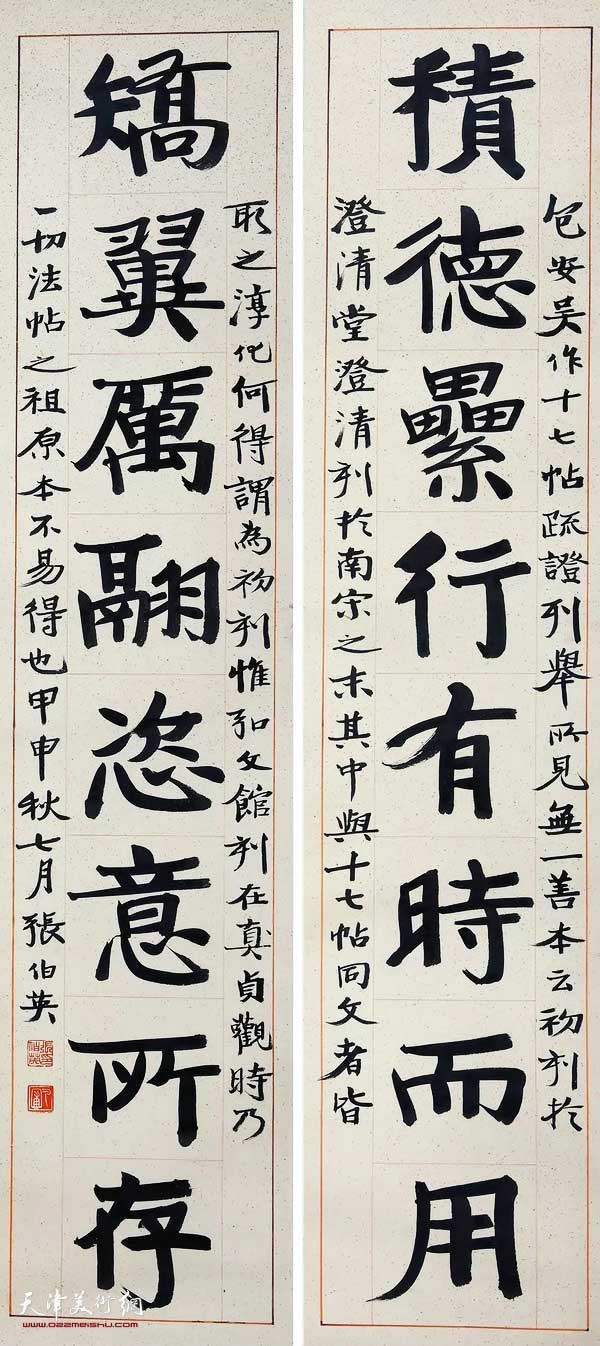 積德纍行有時而用
包安吴作十七帖疏證列舉所見無一善本云初刻於
澄清堂澄清刻於南宗之末其中與十七帖同文者皆
矯翼厲翮恣意所存
取之淳化何得謂為初刻惟弘文館刻在真貞觀時乃
一切法帖之祖原本不易得也甲申秋七月張伯英
天津美術網
www.022meishu.com